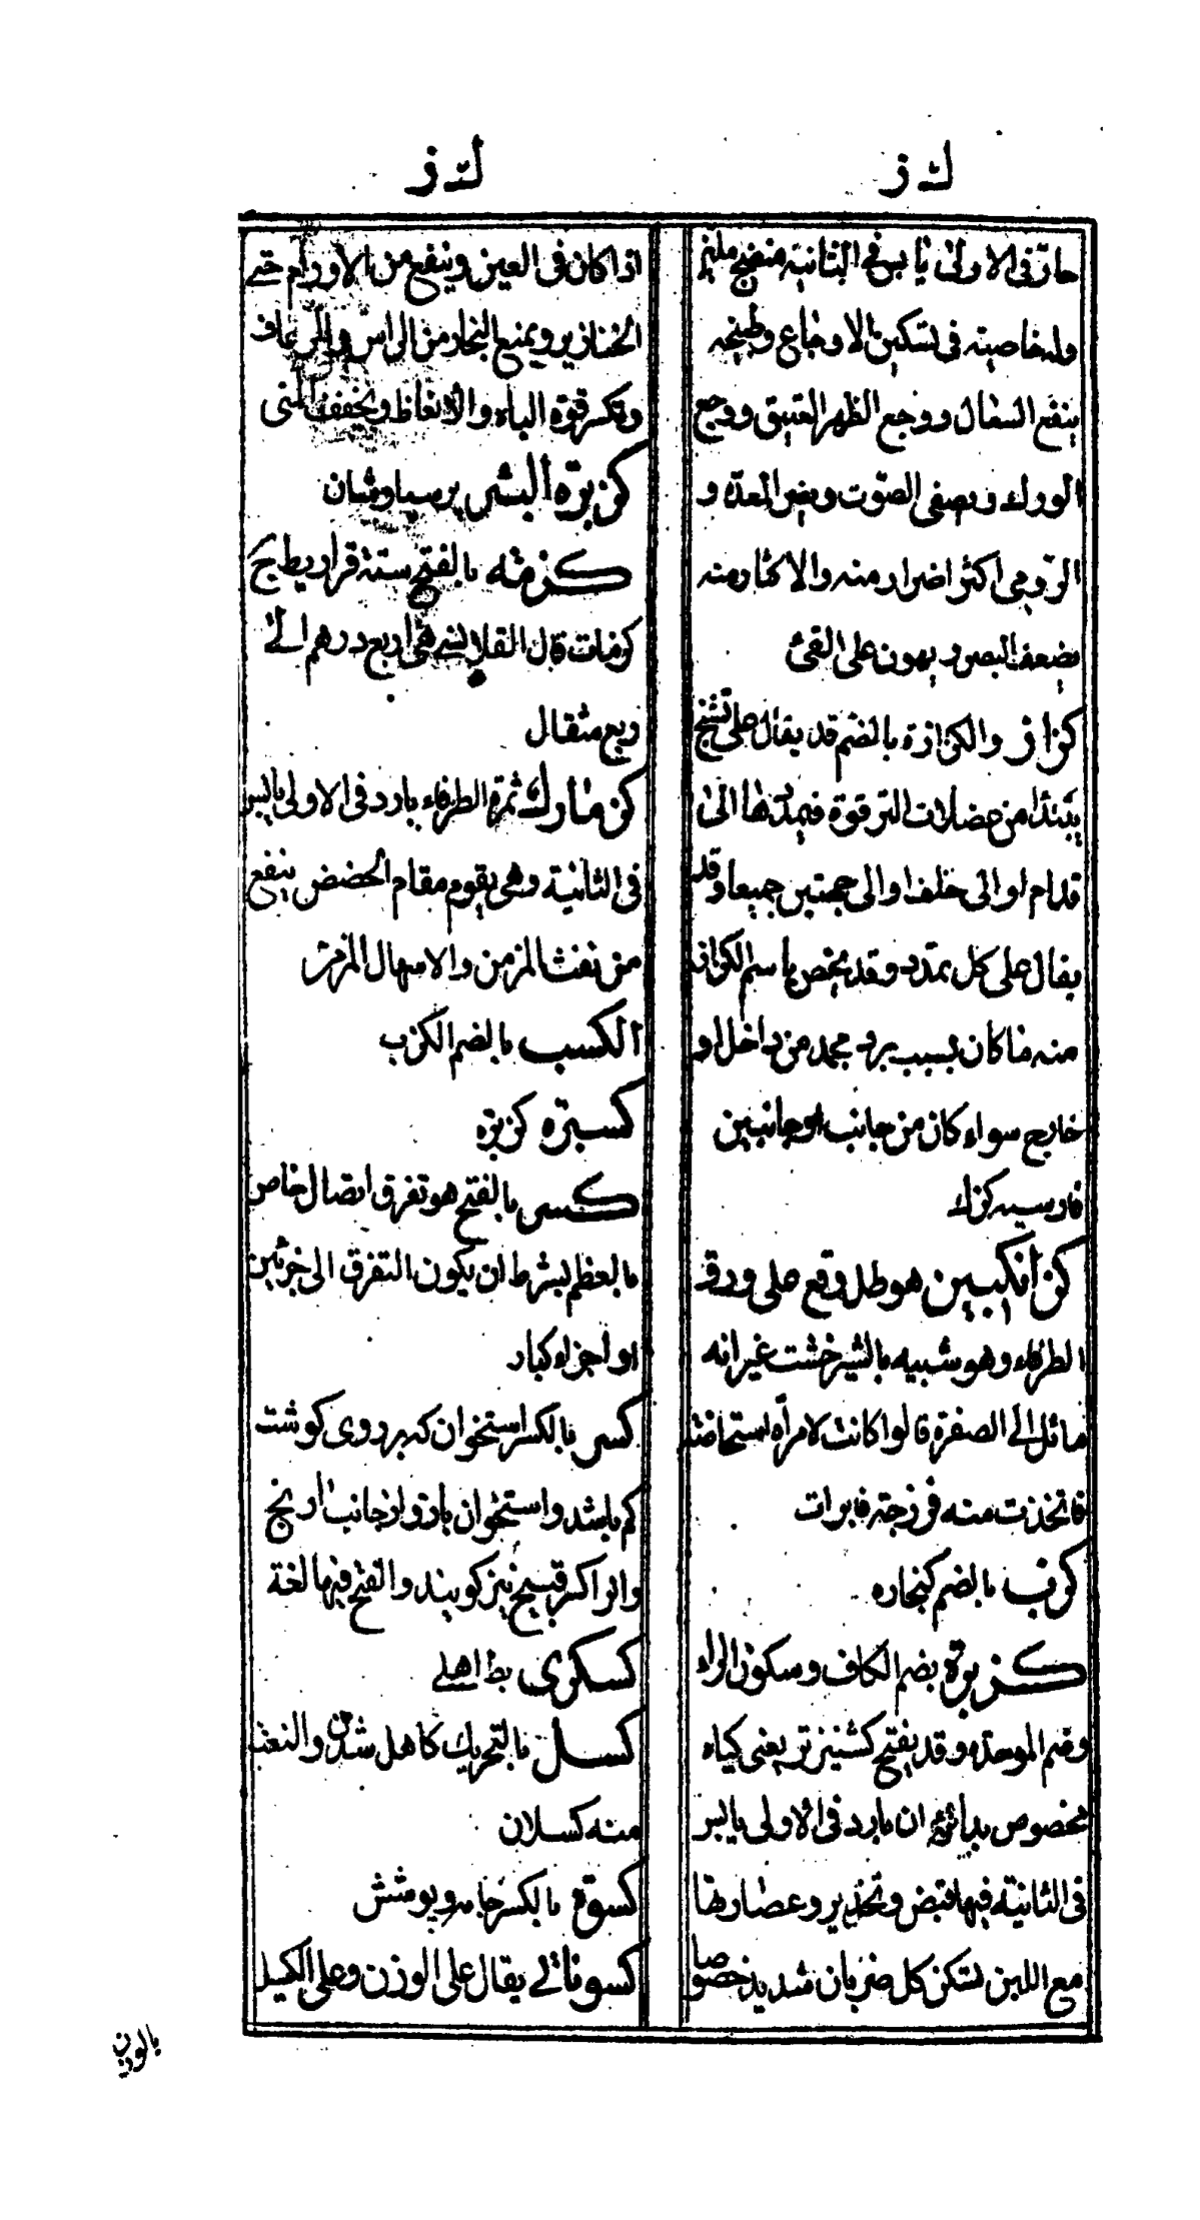 ك ز
حار فی الاولی یابس فی الثانیة منضج ملین
وله خاصیته فی تسکین الاوجاع وطبیخه
ینفع السعال ووجع الظهر العتیق ووجع
الورك ویصفی الصوت ویضر المعده و
الرومی اکثر اضرار منه والاکثار منه
یضعف البصر و یهون علی القئ
کزاز والکزازة بالضم قد یقال علی تشنج
یبتدا من عضلات الترقوة فیمددها الی
قدام او الی خلف او الی جهتین جمیعا وقد
یقال علی کل تمدد وقد یخص باسم الکزاز
منه ما کان بسبب برد مجمد من داخل او
خارج سواء کان من جانب او جانبین
فارسیه کزك
کزانکبین هو طل وقع علی ورق
الطرفاء وهو شبیه بالشیر خشت غیر انه
مائل الی الصفرة قالوا کانت لامرأه استحاضة
فاتخذت منه فرزجة فابرات
کزب بالضم کنجاره
کزبرة بضم الکاف وسکون الزاء
وضم الموحده وقد یفتح کشنیز تر یعنی کیاه
مخصوص بارد فی الاولی یابس
فی الثانیة فیها قبض وتخدیر وعصارتها
مع اللبن تسکن کل ضربان شدید خصوصا
ك ز
اذا کان فی العین وینفع من الاورام حتی
الخنازیر ویمنع البخار من الراس والرعاف
وتکسر قوة الباه والانعاظ ویجفف المنی
کزبرة البئر پرسیاوشان
کزمثه بالفتح ستة قراریط ج
کزمات قال القلانسی هی اربع درهم الی
ربع مثقال
کزمازك ثمرة الطرفاء بارد فی الاولی یابس
فی الثانیة وهی یقوم مقام الحضض ینفع
من نفث المزمن والاسهال المزمن
الکسب بالضم الکزب
کسبرة کزبرة
کسر بالفتح هو تفرق اتصال خاص
بالعظم بشرط ان یکون التفرق الی جزئین
او اجزاء کبار
کسر بالکسر استخوان که بر روی کوشت
کم باشد و استخوان بازو از جانب ارنج
وانرا کسر قبیح نیز کویند والفتح فیها لغة
کسکری بط اهلی
کسل بالتحریك کاهل شدن والنعت
منه کسلان
کسوة بالکسر جامه وپوشش
کسوناثی یقال علی الوزن وعلی الکیل
بالوزن